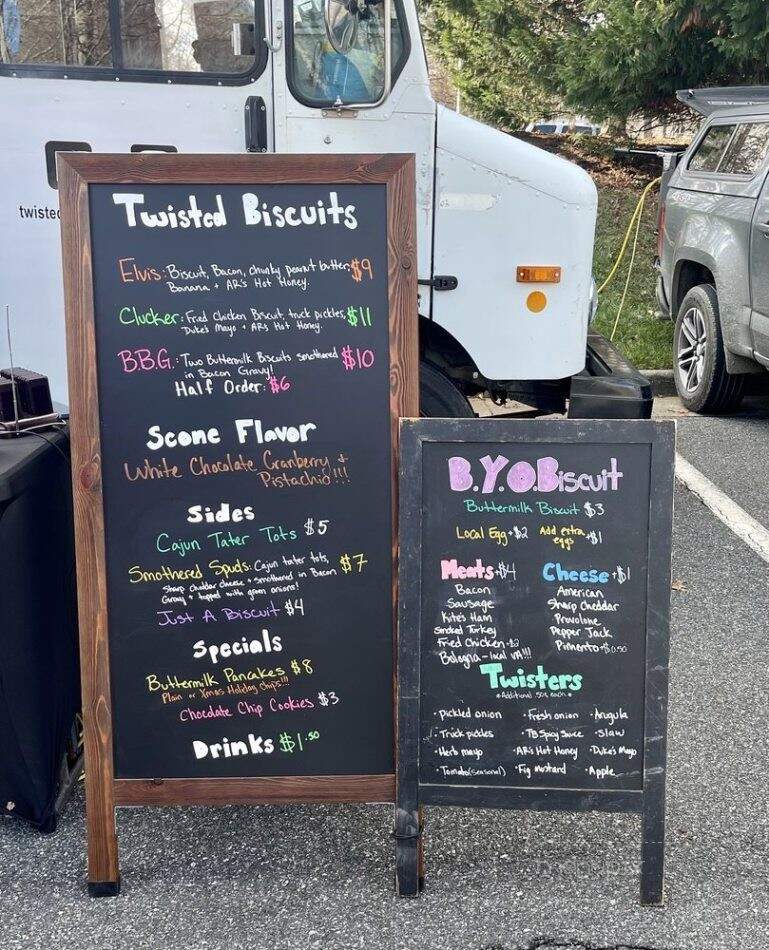 twisted
Twisted Biscuits
Elvis: Biscuit, Bacon, chunky peanut butter, $9
Banana + AR's Hot Honey.
Clucker: Fried Chicken Biscuit, truck pickles, $11
Duke's Mayo + ARs Hot Honey.
B.B.G.: Two Buttermilk Biscuits smothered $10
in Bacon Gravy!
Half Order: $6
Scone Flavor
White Chocolate Cranberry +
Pistachio!!!
Sides
Cajun Tater Tots $5
Smothered Spuds: Cajun tater tots, $7
Sharp cheddar cheese + smothered in Bacon
Gravy + topped with green onions!
Just A Biscuit $4
Specials
Buttermilk Pancakes $8
Plain or Xmas Holiday chips!!!
Chocolate Chip Cookies $3
Drinks $1.50
B.Y.O.Biscuit
Buttermilk Biscuit $3
Local Egg +$2 Add extra eggs +$1
Meats +$4 Cheese +$1
Bacon American
Sausage Sharp Cheddar
Kite's Ham Provolone
Smoked Turkey Pepper Jack
Fried Chicken +$2 Pimento +$0.50
Bologna - local VA!!!
Twisters
*Additional 50¢ each*
• pickled onion • Fresh onion • Arugula
• Truck pickles • TB Spicy Sauce • Slaw
• Herb mayo • AR's Hot Honey • Duke's Mayo
• Tomato (seasonal) • Fig mustard • Apple